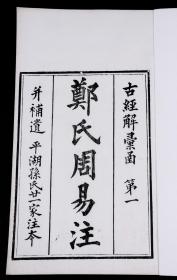 古經解彙函 第一
鄭氏周易注
并補遺 平湖孫氏廿一家注本